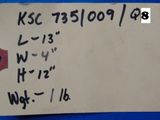 KSC 735/009/Q8
L-13"
W-4"
H-12"
Wgt.-1 lb.